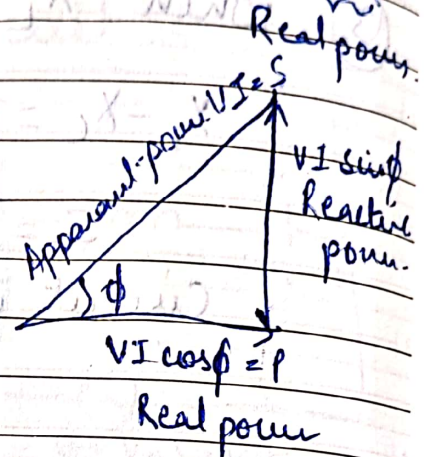 Real power.
Apparant-power VI = S
VI sinϕ
Reactive
power.
ϕ
VI cosϕ = P
Real power